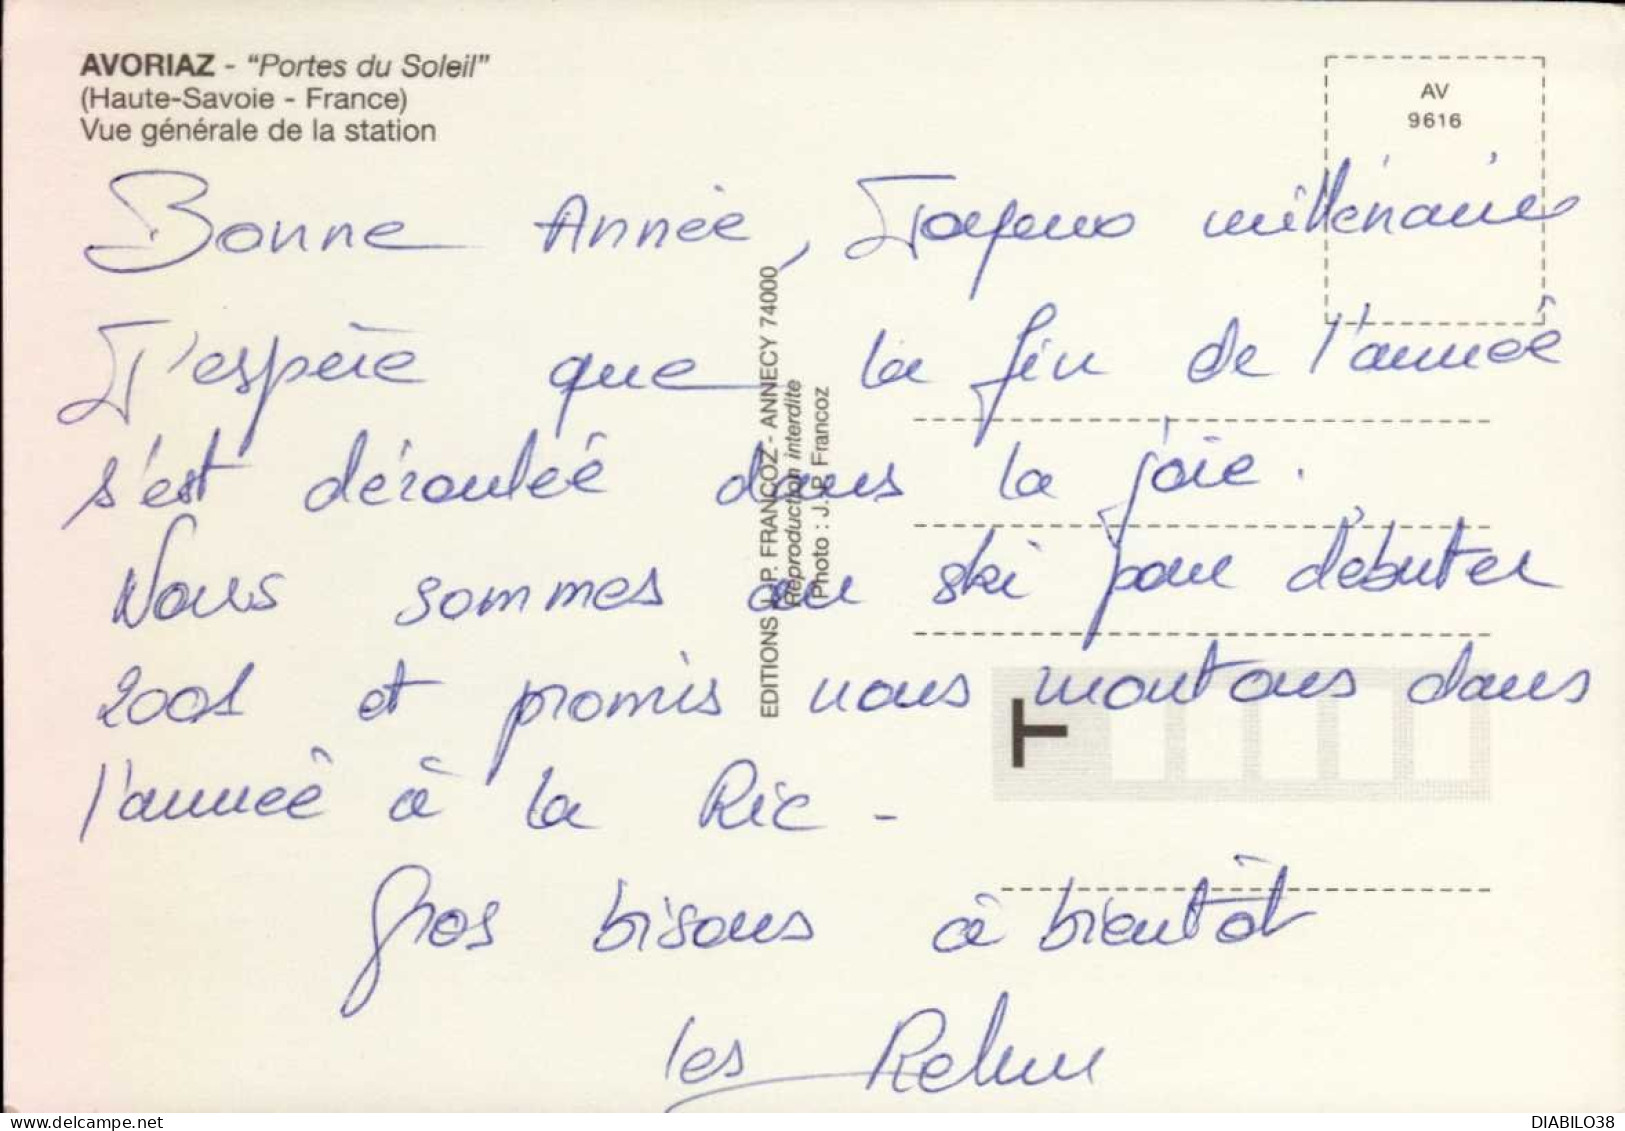 AVORIAZ - "Portes du Soleil"
(Haute-Savoie - France)
Vue générale de la station
AV
9616
Bonne Année, Joyeux millénaire
J'espère que la fin de l'année
s'est déroulée dans la joie.
Nous sommes au ski pour débuter
2001 et promis nous montons dans
l'année à la Ric -
Gros bisous à bientôt
les
EDITIONS J.P. FRANCOZ - ANNECY 74000
Reproduction interdite
Photo : J.P. Francoz
T
DIABILO38